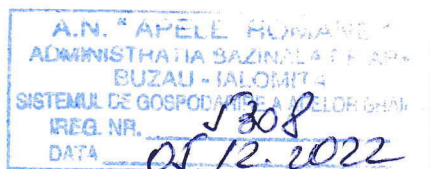 A.N. "APELE ROMANE"
ADMINISTRATIA BAZINALA DE APA
BUZAU - IALOMITA
SISTEMUL DE GOSPODARIRE A APELOR
IREG. NR. 5308
DATA 05 12. 2022